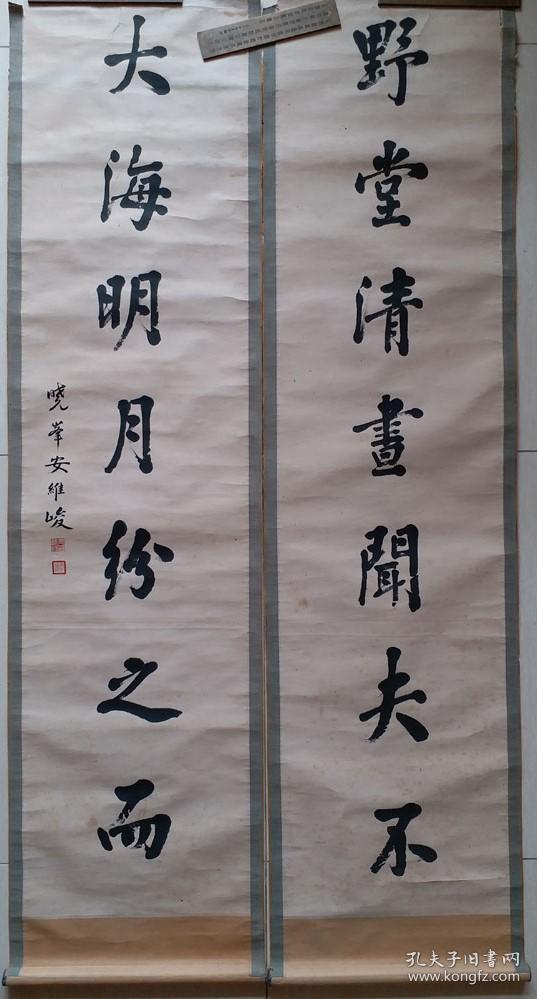 野堂清晝聞夫不
大海明月紛之而
曉峯安維峻
孔夫子旧书网
www.kongfz.com